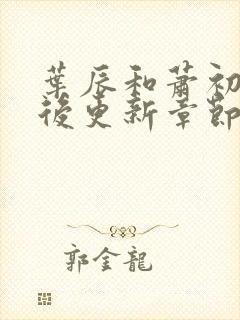 葉辰和蕭初
後更新章節
郭金龍